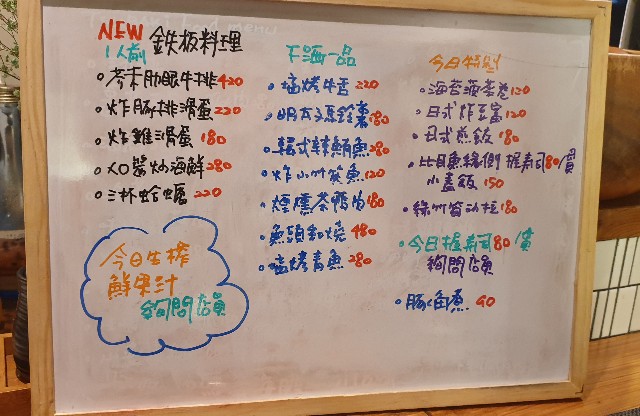 NEW 鉄板料理
1人前
芥末肋眼牛排420
炸豚排滑蛋220
炸雞滑蛋180
XO醬炒海鮮280
三杯蛤蠣220
今日生搾
鮮果汁
詢問店員
下酒一品
塩烤牛舌220
明太馬鈴薯180
韓式辣鮪魚280
炸小竹筴魚120
煙燻茶鴨肉180
魚頭和燒480
塩烤青魚280
今日特別
海苔蘋菜卷120
日式炸豆腐120
日式煎餃180
比目魚緣側 握壽司80/貫
小蓋飯150
綠竹筍沙拉180
今日握壽司80/貫
詢問店員
豚角煮90